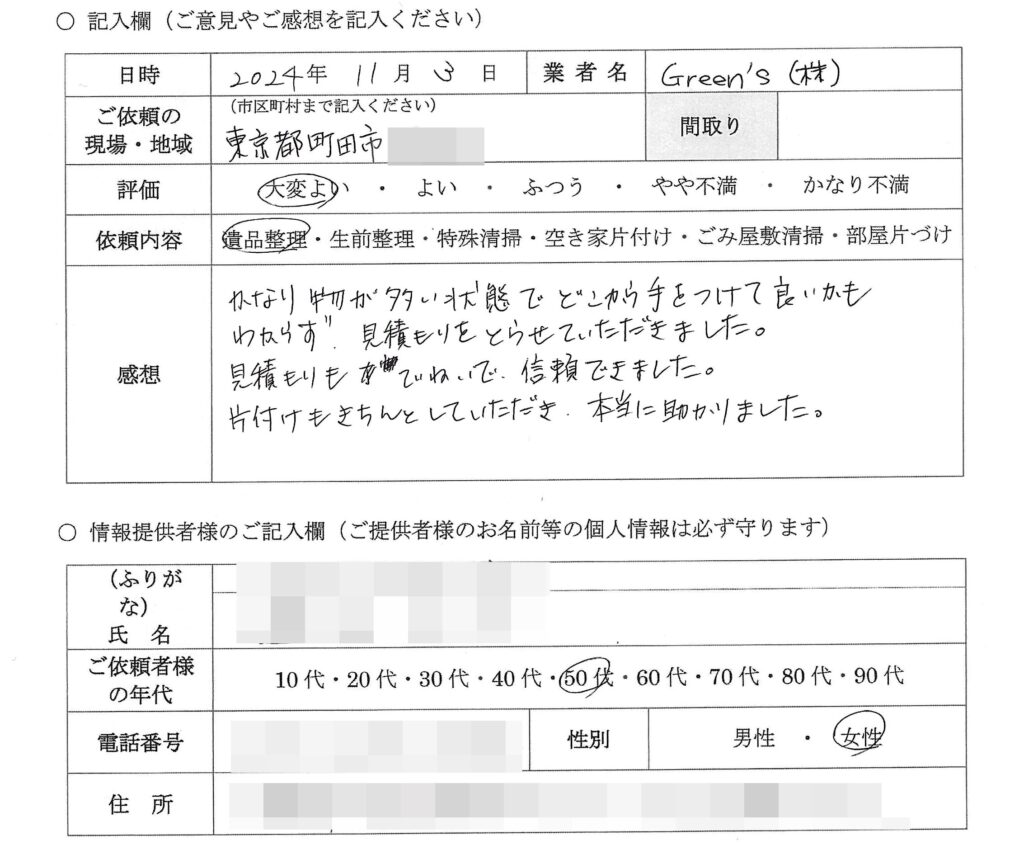 ○ 記入欄（ご意見やご感想を記入ください）
日時 2024年 11月 3日 業者名 Green's (株)
ご依頼の現場・地域 （市区町村まで記入ください） 間取り
東京都町田市
評価 大変よい ・ よい ・ ふつう ・ やや不満 ・ かなり不満
依頼内容 遺品整理・生前整理・特殊清掃・空き家片付け・ごみ屋敷清掃・部屋片づけ
感想
かなり物が多い状態でどこから手をつけて良いかも
わからず 見積もりをとらせていただきました。
見積もりも ていねいで、信頼できました。
片付けもきちんとしていただき、本当に助かりました。
○ 情報提供者様のご記入欄（ご提供者様のお名前等の個人情報は必ず守ります）
（ふりがな）
氏 名
ご依頼者様の年代 10代・20代・30代・40代・50代・60代・70代・80代・90代
電話番号 性別 男性 ・ 女性
住 所